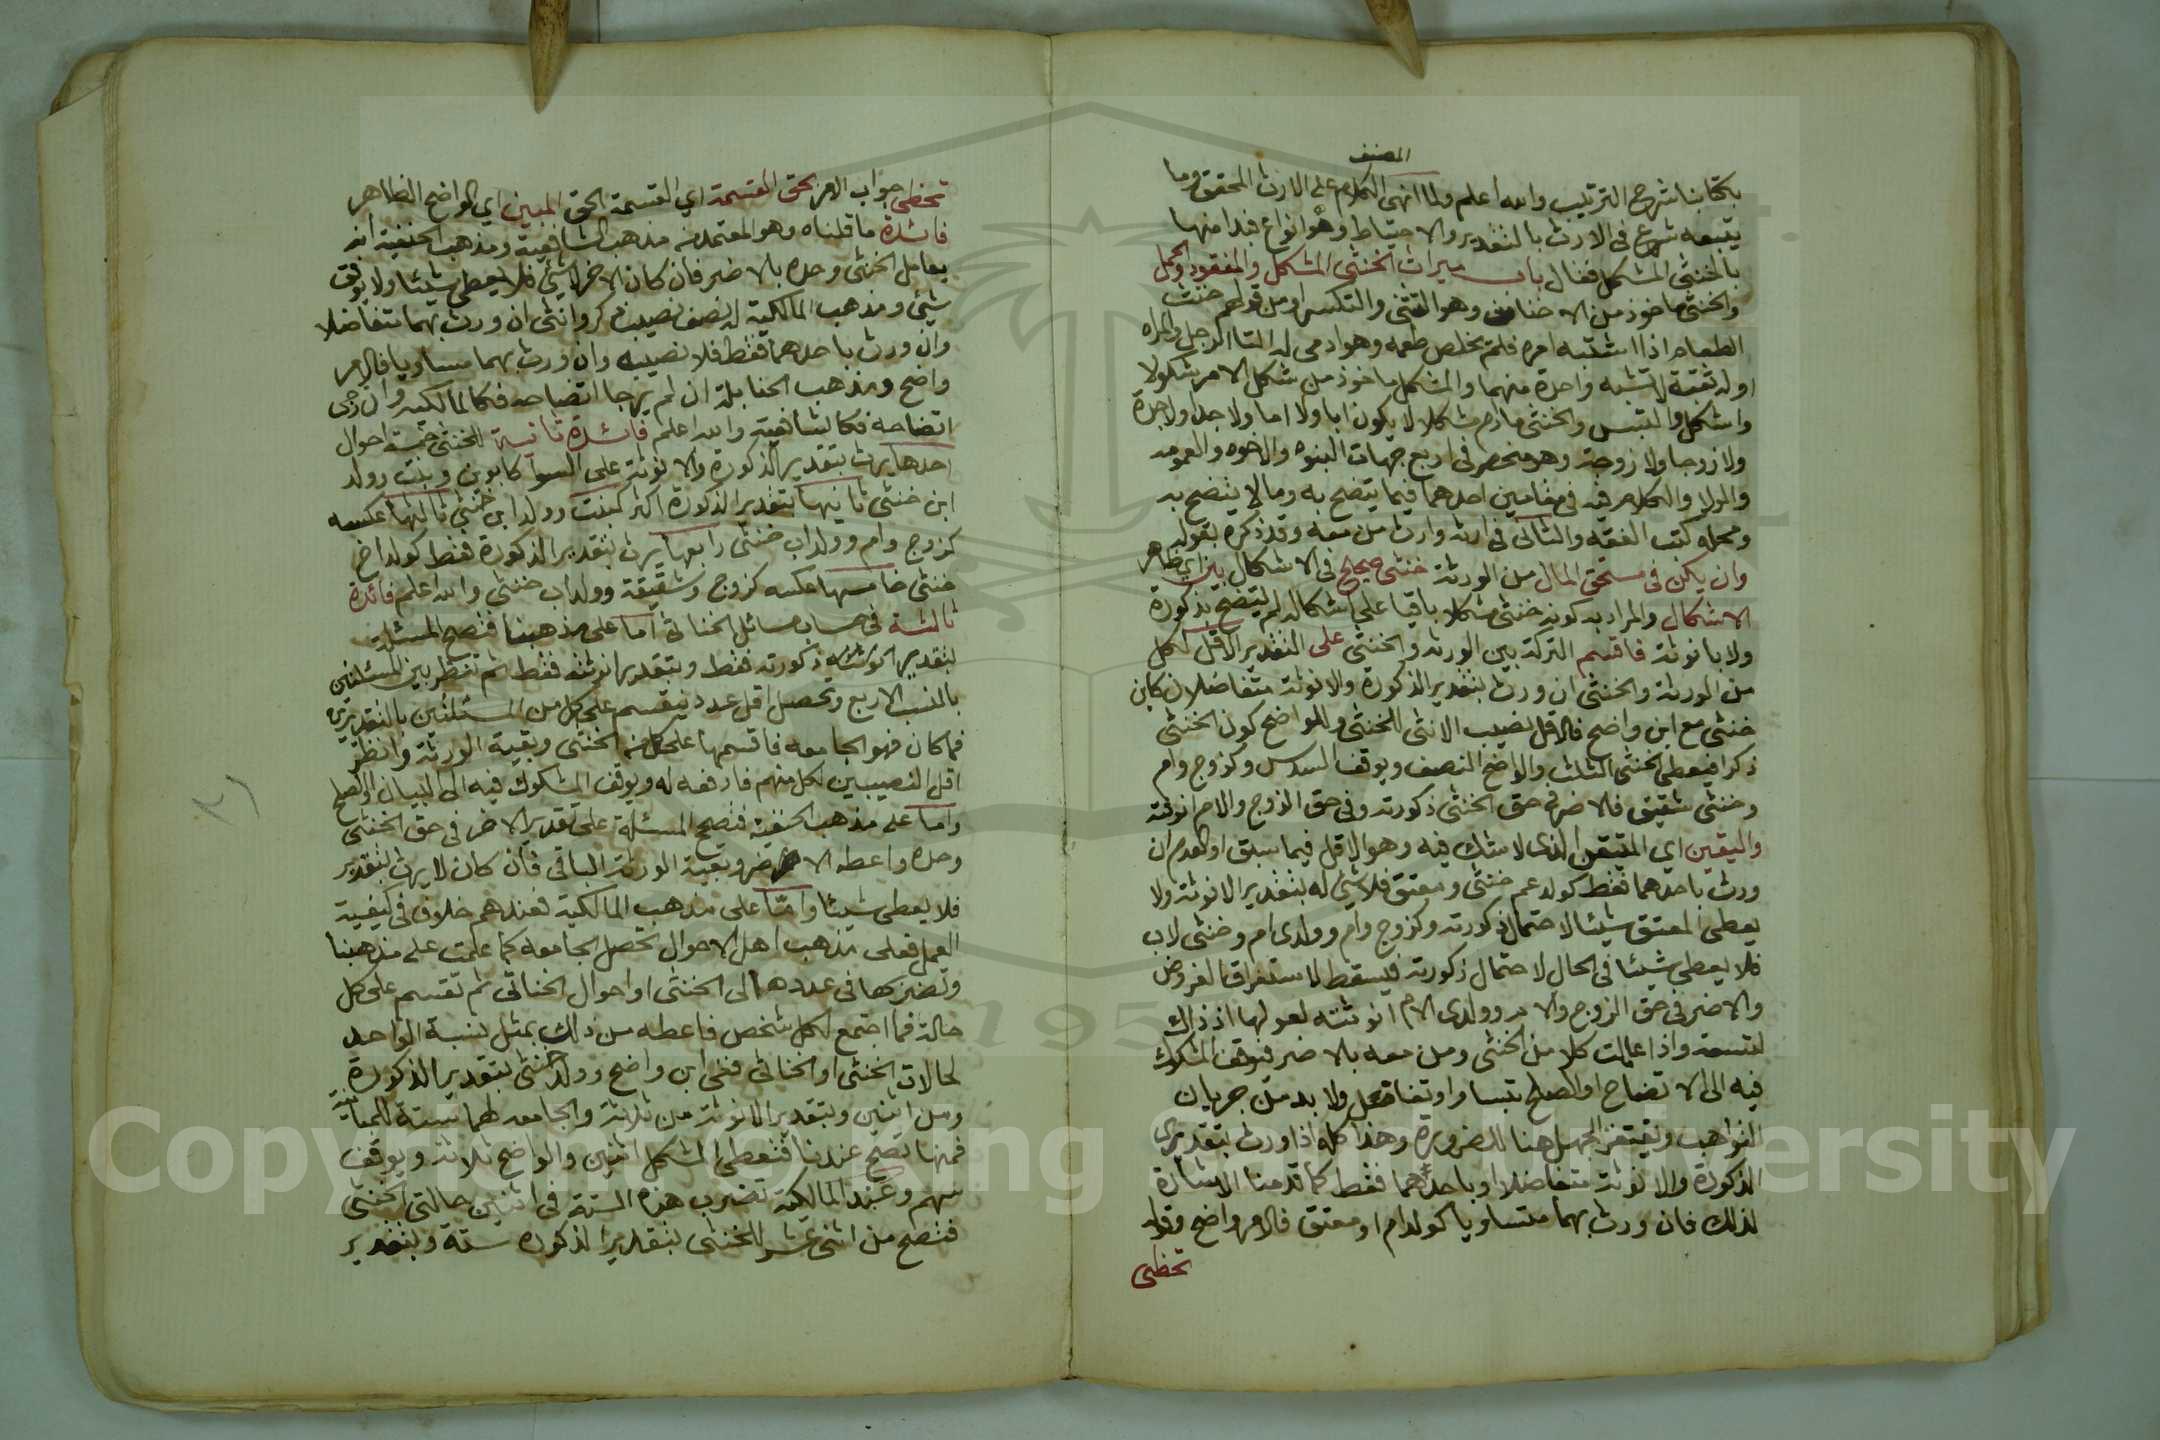 المصنف
بكتابنا شرح الترتيب والله اعلم ولما انهى الكلام على الارث المحقق وما
يتبعه شرع في الارث بالتقدير والاحتياط وهو انواع فبدا منها
بالخنثى المشكل فقال باب ميراث الخنثى المشكل والمفقود والحمل
والخنثى ماخوذ من الانخناث وهو التثني والتكسر او من قولهم خنث
الطعام اذا اشتبه امره فلم يخلص طعمه وهو ادمي له التا الرجل والمراه
اوله ثقبة لا تشبه واحدة منهما والمشكل ماخوذ من شكل الامر شكولا
واشكل والتبس والخنثى ما دام مشكلا لا يكون ابا ولا اما ولا جدا ولا جدة
ولا زوجا ولا زوجة وهو منحصر في اربع جهات البنوه والاخوه والعمومه
والولا والكلام فيه في مقامين احدهما فيما يتضح به وما لا يتضح به
ومحله كتب الفقه والثاني في ارثه وارث من معه وقد ذكره بقوله
وان يكن في مستحق المال من الورثة خنثى صحيح في الاشكال بين اي ظاهر
الاشكال والمراد به كونه خنثى مشكلا باقيا على اشكاله لم يتضح بذكورة
ولا بانوثة فاقسم التركة بين الورثة والخنثى على التقدير الاقل لكل
من الورثة والخنثى ان ورث بتقدير الذكورة والانوثة متفاضلان كابن
خنثى مع ابن واضح فالاقل نصيب الانثى للخنثى وللواضح كون الخنثى
ذكرا فيعطى الخنثى الثلث والواضح النصف ويوقف السدس وكزوج وام
وخنثى شقيق فالاضر في حق الخنثى ذكورته وفي حق الزوج والام انوثته
واليقين اي المتيقن الذي لا شك فيه وهو الاقل فيما سبق او العدم ان
ورث باحدهما فقط كولد عم خنثى ومعتق فلا شيئ له بتقدير الانوثة ولا
يعطى المعتق شيئا لاحتمال ذكورته وكزوج وام وولدى ام وخنثى لاب
فلا يعطى شيئا في الحال لاحتمال ذكورته فيسقط لاستغراق الفروض
والاضر في حق الزوج والام وولدى الام انوثته لعولها اذ ذاك
لتسعة واذا عاملت كلا من الخنثى ومن معه بالاضر فيوقف المشكوك
فيه الى الاتضاح او الصلح بتساو او تفاضل ولا بد من جريان
التواهب ويغتفر الجهل هنا للضرورة وهذا كله اذا ورث بتقديري
الذكورة والانوثة متفاضلا او باحدهما فقط كما قدمنا الاشارة
لذلك فان ورث بهما متساويا كولد ام او معتق فالامر واضح وقوله
تحظى
تحظى جواب الامر بحق القسمة اي القسمة الحق المبين اي الواضح الظاهر
فائدة ما قلناه وهو المعتمد من مذهب الشافعية ومذهب الحنفية انه
يعامل الخنثى وحده بالاضر فان كان الاضر لا شيئ فلا يعطى شيئا ولا يوقف
شيئ ومذهب المالكية له نصف نصيب ذكر وانثى ان ورث بهما متفاضلا
وان ورث باحدهما فقط فله نصيبه وان ورث بهما مساويا فالامر
واضح ومذهب الحنابلة ان لم يرجا اتضاحه فكالمالكيه وان رجى
اتضاحه فكالشافعية والله اعلم فائدة ثانية للخنثى خمسة احوال
احدها يرث بتقدير الذكورة والانوثة على السوا كابوين وبنت وولد
ابن خنثى ثانيها بتقدير الذكورة اكثر كبنت وولد ابن خنثى ثالثها عكسه
كزوج وام وولد اب خنثى رابعها يرث بتقدير الذكورة فقط كولد اخ
خنثى خامسها عكسه كزوج وشقيقة وولد اب خنثى والله اعلم فائدة
ثالثة في حساب مسائل الخناثى اما على مذهبنا فتصح المسئلة
بتقدير ذكورته فقط وبتقدير انوثته فقط ثم تنظر بين المسئلتين
بالنسب الاربع وتحصل اقل عدد ينقسم على كل من المسئلتين بالتقديرين
فما كان فهو الجامعه فاقسمها على كل من الخنثى وبقية الورثة وانظر
اقل النصيبين لكل منهم فادفعه له ويوقف المشكوك فيه الى البيان او الصلح
واما على مذهب الحنفية فتصح المسئلة على تقدير الاضر في حق الخنثى
وحده واعطه الاضر وبقية الورثة الباقي فان كان لا يرث بتقدير
فلا يعطى شيئا واما على مذهب المالكية فعندهم خلاف في كيفية
العمل فعلى مذهب اهل الاحوال تحصل الجامعه كما علمت على مذهبنا
وتضربها في عدد حالى الخنثى او احوال الخناثى ثم تقسم على كل
حالة فما اجتمع لكل شخص فاعطه من ذلك بمثل نسبة الواحد
لحالات الخنثى او الخناثى ففي ابن واضح وولد خنثى بتقدير الذكورة
من اثنين وبتقدير الانوثة من ثلاثة والجامعه لهما ستة للمباينة
فمنها تصح عندنا فتعطى المشكل اثنين والواضح ثلاثة ويوقف
سهم وعند المالكية تضرب هذه الستة في اثنين حالتى الخنثى
فتصح من اثنى عشر للخنثى بتقدير الذكورة ستة وبتقدير
Copyright © King Saud University
195